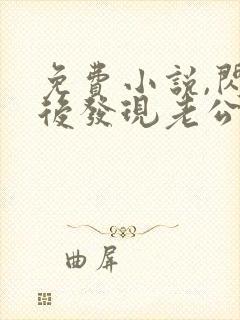 免費小説,閃
後發現老公
曲屏